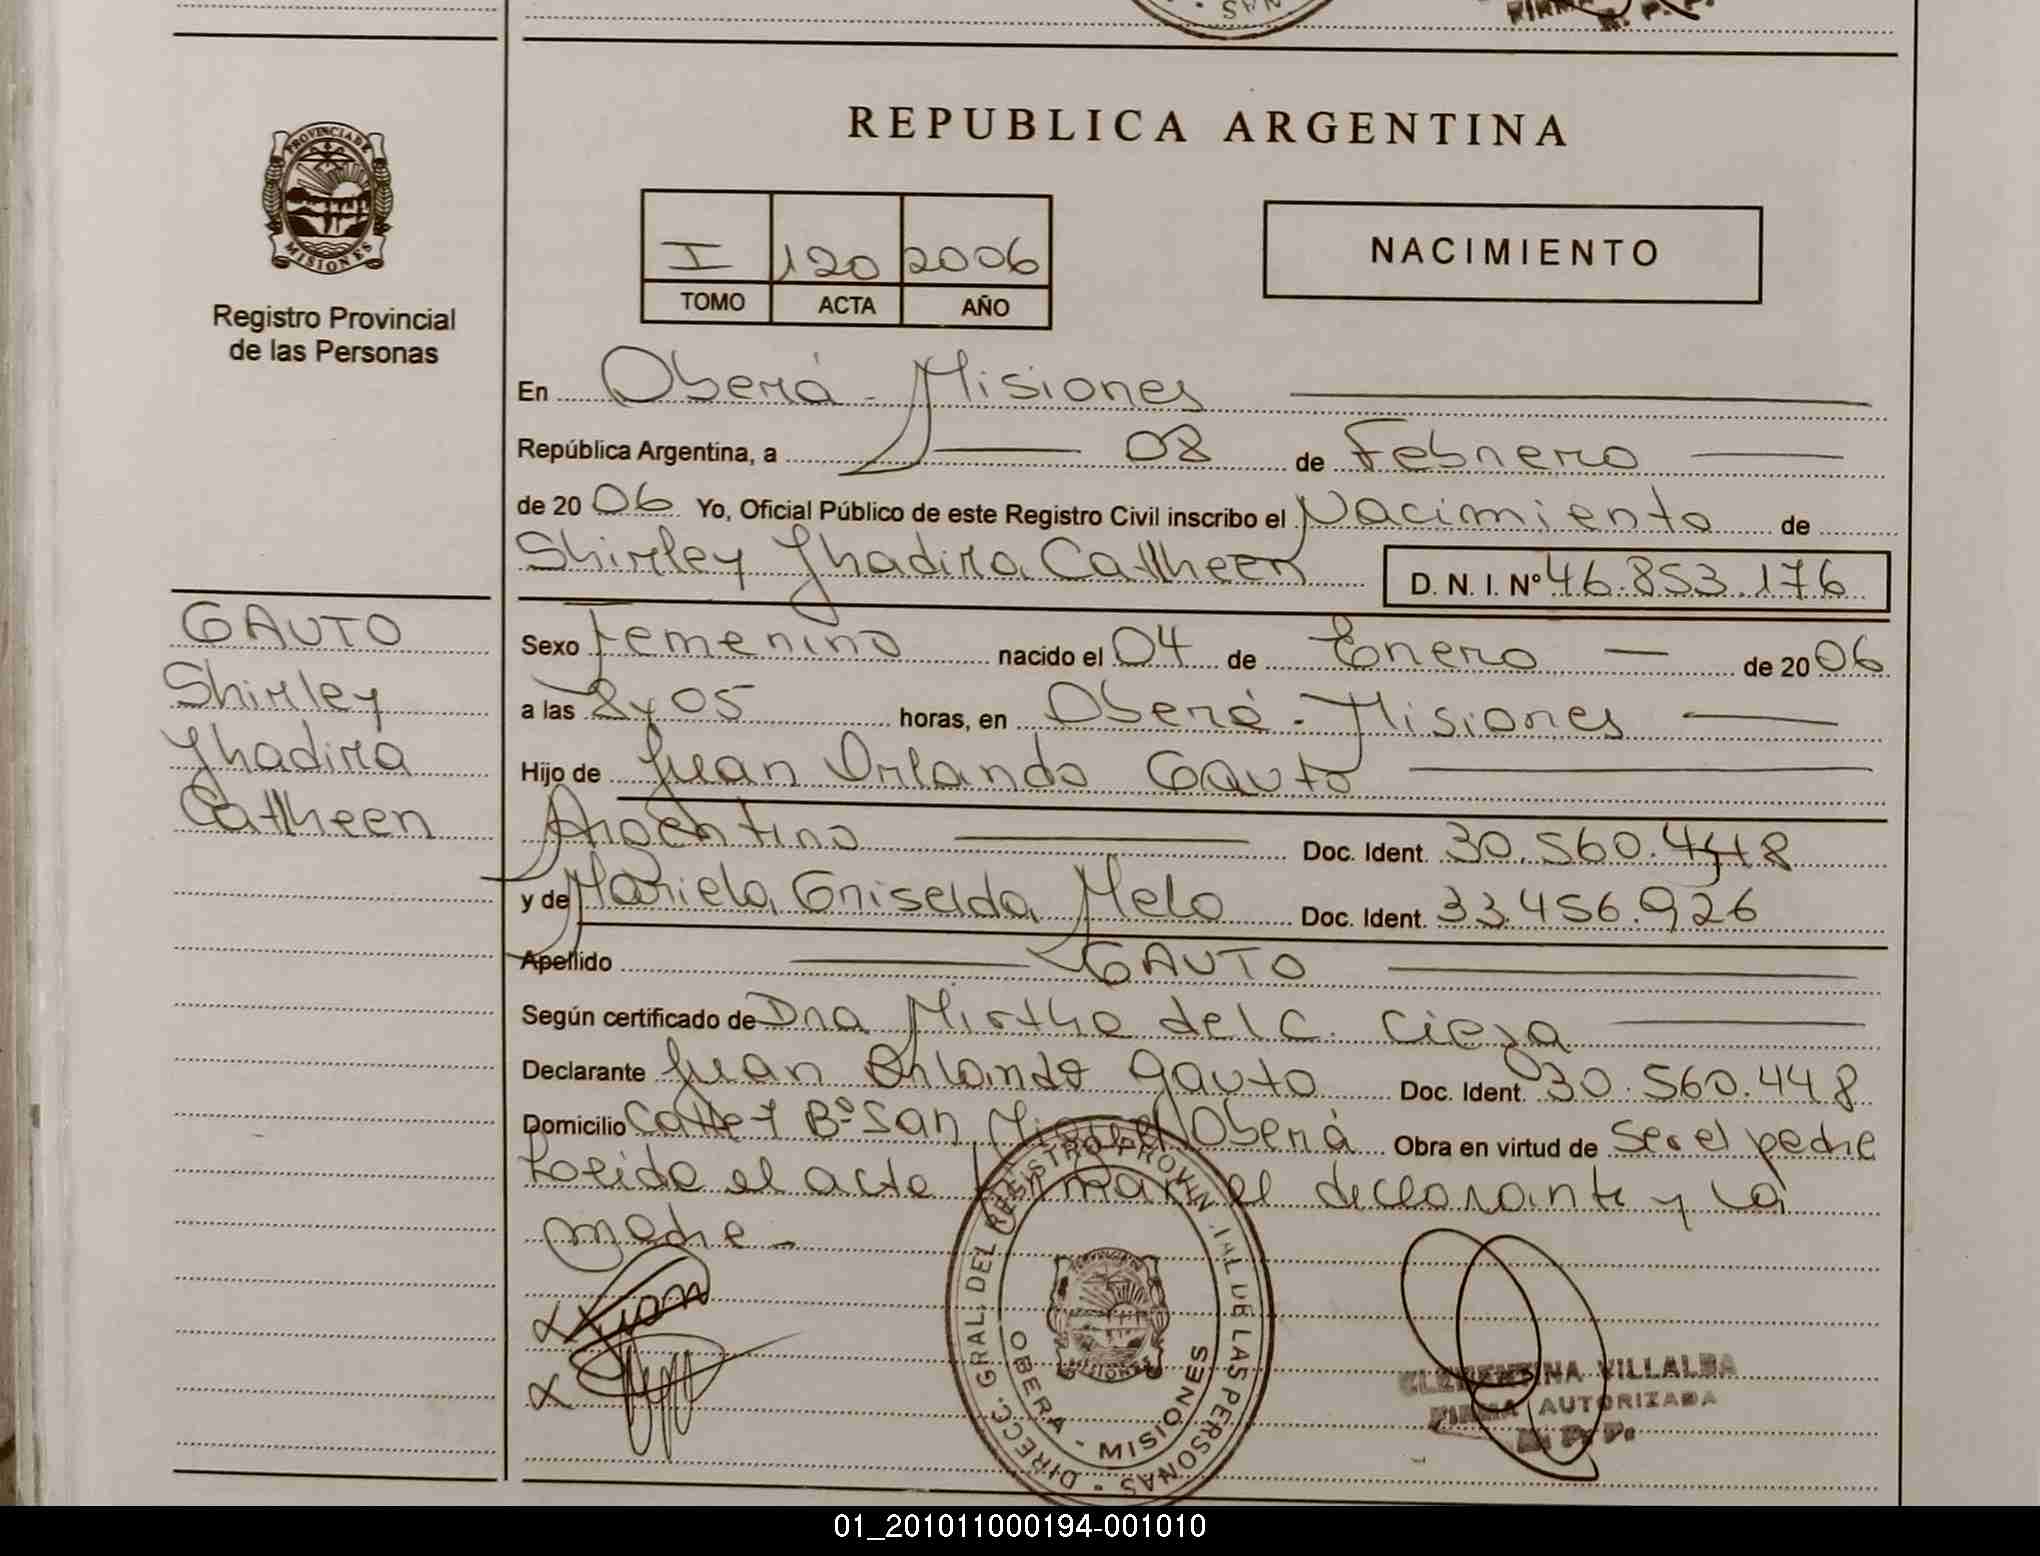 FIRMA
R. P. P.
PROVINCIA DE
MISIONES
Registro Provincial
de las Personas
REPUBLICA ARGENTINA
I 120 2006
TOMO ACTA AÑO
NACIMIENTO
En Oberá - Misiones
República Argentina, a 08 de Febrero
de 2006 Yo, Oficial Público de este Registro Civil inscribo el Nacimiento de
Shirley Jhadira Cattheen D. N. I. Nº 46.853.176
GAUTO
Shirley
Jhadira
Cattheen
Sexo Femenino nacido el 04 de Enero de 2006
a las 8 y 05 horas, en Oberá - Misiones
Hijo de Juan Orlando Gauto
Argentino Doc. Ident. 30.560.448
y de Mariela Griselda Melo Doc. Ident. 33.456.926
Apellido GAUTO
Según certificado de Dra Mirtha del C. Cieza
Declarante Juan Orlando Gauto Doc. Ident. 30.560.448
Domicilio Bº San Miguel Oberá Obra en virtud de Ser el padre
el acto firman el declarante y la
madre -
DIRECC. GRAL. DEL REGISTRO PROVINCIAL DE LAS PERSONAS
OBERA - MISIONES
CLEMENTINA VILLALBA
FIRMA AUTORIZADA
R. P. P.
01_201011000194-001010